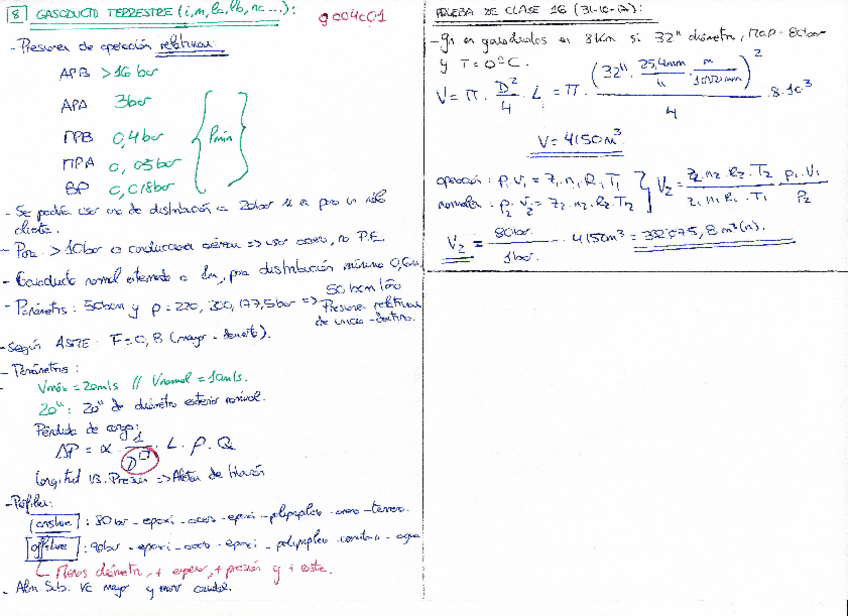 8 GASODUCTO TERRESTRE (i, m, la, lb, nc ...): gc04c01
- Presiones de operación relativas:
APB > 16 bar
APA 3bar
MPB 0,4 bar
MPA 0,05 bar
BP 0,018 bar
Pmin
- Se podría usar uno de distribución a 20bar si es para un sólo
cliente.
- Para > 10bar o conducciones aéreas => usar acero, no P.E.
- Gasoducto normal enterrado a 1m, para distribución mínimo 0,6m
- Parámetros: 50bcm y p = 220, 300, 177,5bar => Presiones relativas
50 bcm /año
de inicio - destino.
- Según ASME: F = 0,8 (mayor - ).
- Parámetros:
Vmáx = 20m/s // Vnormal = 10m/s.
20": 20" de diámetro exterior nominal.
Pérdida de carga:
ΔP = α · 1/D · L · ρ · Q
Longitud vs. Presión =>
- Perfiles:
onshore : 80 bar - epoxi - acero - epoxi - - - terreno.
offshore : 90bar - epoxi - acero - epoxi - - - agua
Menos diámetro, + espesor, + presión y + coste.
- Alm. Sub. VC mayor y menor caudal.
PRUEBA DE CLASE 16 (31-10-):
- Gn en gasoductos en 8km si 32" diámetro, M.O.P = 80bar
y T = 0ºC.
V = π · D²/4 · L = π · (32" · 25,4mm/" · m/1000mm)²/4 · 8·10³
V = 4150m³
operación: p₁·V₁ = z₁·n₁·R₁·T₁
normales: p₂·V₂ = z₂·n₂·R₂·T₂
V₂ = z₂·n₂·R₂·T₂/z₁·n₁·R₁·T₁ · p₁·V₁/p₂
V₂ = 80bar/1bar · 4150m³ = 332075,8 m³(n).